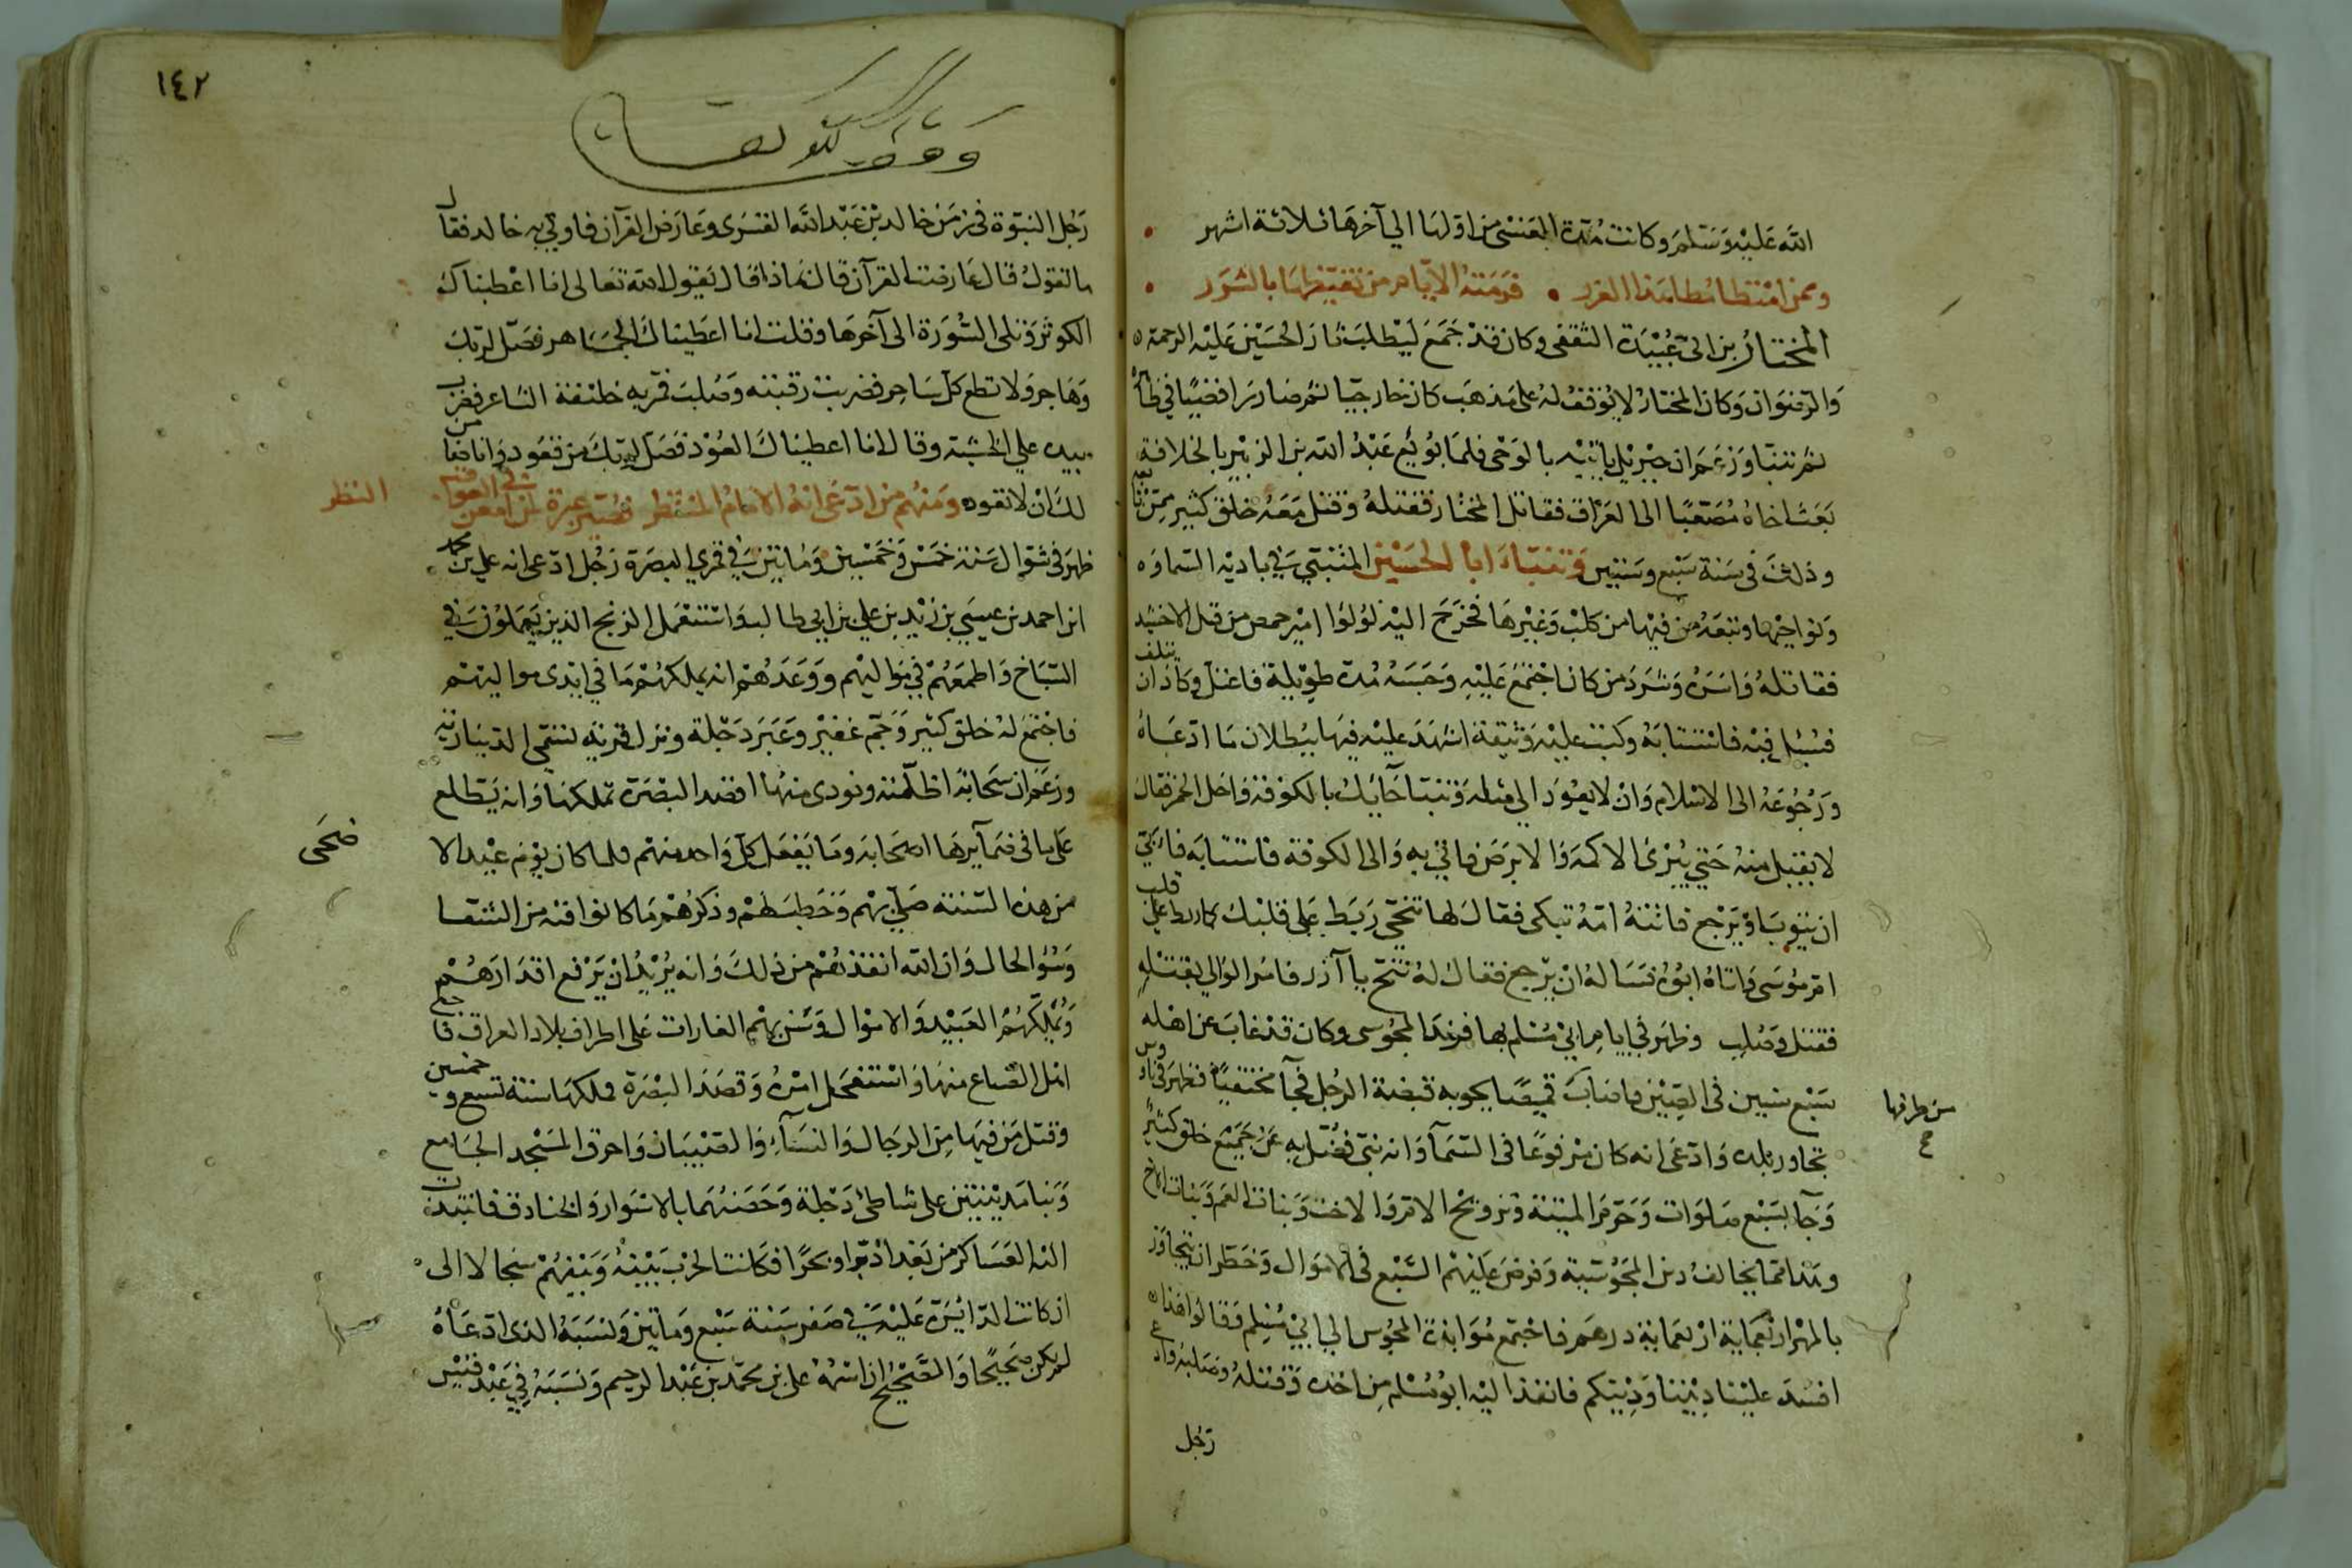 الله عليه وسلم وكانت مدة العنسي من اولها الي آخرها ثلاثة اشهر
وممن امتطا مطا هذا الغرر فرمته الايام من تغيرها بالشرر
المختار بن ابي عبيدة الثقفى وكان قد جمع ليطلب بثار الحسين عليه الرحمة
والرضوان وكان المختار لا يوقف له على مذهب كان خارجيا ثم صار رافضيا في ظاهره
ثم تنبا وزعم ان جبريل ياتيه بالوحى فلما بويع عبد الله بن الزبير بالخلافة
بعث اخاه مصعبا الى العراق فقاتل المختار فقتله وقتل معه خلق كثير ممن تابعه
وذلك فى سنة سبع وستين وتنباء ابا الحسين المتنبي في بادية السماوه
ونواحيها وتبعه من فيها من كلب وغيرها فخرج اليه لولوا امير حمص من قبل الاخشيد
فقاتله واسره وشرد من كان اجتمع عليه وحبسه مدة طويلة فاعتل وكاد ان يتلف
فسئل فيه فاستتابه وكتب عليه وثيقة اشهد عليه فيها ببطلان ما ادعاه
ورجوعه الى الاسلام وان لا يعود الي مثله وتنبا حايك بالكوفة واحل الخمر فقال
لا يقبل منه حتي يبرئ الاكمه والابرص فاتي به والى الكوفة فاستتابه فابي
ان يتوب او يرجع فاتته امه تبكى فقال لها تنحي ربط على قلبك كما ربط على قلب
ام موسى واتاه ابوه فسأله ان يرجع فقال له تنح يا آزر فامر الوالي بقتله
فقتل وصلب وظهر في ايام ابي مسلم بها فرند المجوسى وكان قد غاب عن اهله
سبع سنين فى الصين فاصاب قميصا يحويه قبضة الرجل فجآ مختفيا فظهر فى ناووس
من طرفها
تجاور بلده وادعى انه كان مرفوعا فى السمآ وانه نبى فضل به عن جميع خلق كثير
وجآ بسبع صلوات وحرم الميتة وتزويج الام والاخت وبنات العم وبنات الاخ
وهذا مما يخالف دين المجوسية وفرض عليهم السبع فى الاموال وحظر ان يتجاوز
بالمهر اربعماية اربعماية درهم فاجتمع موابذة المجوس الي ابي مسلم فقالوا هذا
افسد علينا ديننا ودينكم فانفذ اليه ابو مسلم من اخذه وقتله وصلبه وادعى
رجل
١٤٢
رجل النبوة فى زمن خالد بن عبد الله القسرى وعارض القرآن فاوتي به خالد فقال
ما تقول قال عارضت القرآن قال بماذا قال يقول الله تعالى انا اعطيناك
الكوثر وتلى السورة الى آخرها وقلت انا اعطيناك الجماهر فصل لربك
وهاجر ولا تطع كل ساحر فضربت رقبته وصلب فمر به خلف الشاعر فضرب
بيده علي الخشبة وقال انا اعطيناك العود فصل لربك من قعود وانا ضامن
لك ان لا تعود ومنهم من ادعى انه الامام المنتظر فصير عبرة لمن امعن فى العواقب
النظر
ظهر فى شوال سنة خمس وخمسين ومائتين في قري البصرة رجل ادعى انه علي بن محمد
ابن احمد بن عيسي بن زيد بن علي بن ابي طالب واستعمل الزنج الذين يعملون في
السباخ واطمعهم في مواليهم ووعدهم انه يملكهم ما في ايدى مواليهم
فاجتمع له خلق كثير وجم غفير وعبر دجلة ونزل قرية تسمى الدينارية
وزعم ان سحابة اظلته ونودى منها اقصد البصرة تملكها وانه يطلع
على ما فى ضمآيرها اصحابه وما يفعل كل واحد منهم فلما كان يوم عيد الا
ضحى
من هذه السنة صلى بهم وخطبهم وذكرهم ما كانوا فيه من الشقا
وسوء الحال وان الله انقذهم من ذلك وانه يريد ان يرفع اقدارهم
ويملكهم العبيد والاموال وشن بهم الغارات على اطراف بلاد العراق فاجلى
اهل الضياع منها واستفحل امره وقصد البصرة فملكها سنة تسع وخمسين
وقتل من فيها من الرجال والنسآء والصبيان واحرق المسجد الجامع
وبنا مدينتين على شاطئ دجلة وحصنهما بالاسوار والخنادق فانتدبت
اليه العساكر من بغداد برا وبحرا فكانت الحرب بينه وبينهم سجالا الى
ان كانت الدائرة عليه في صفر سنة سبع ومائتين ونسبه الذى ادعاه
لم يكن صحيحا والصحيح ان اسمه على بن محمد بن عبد الرحيم ونسبه في عبد قيس